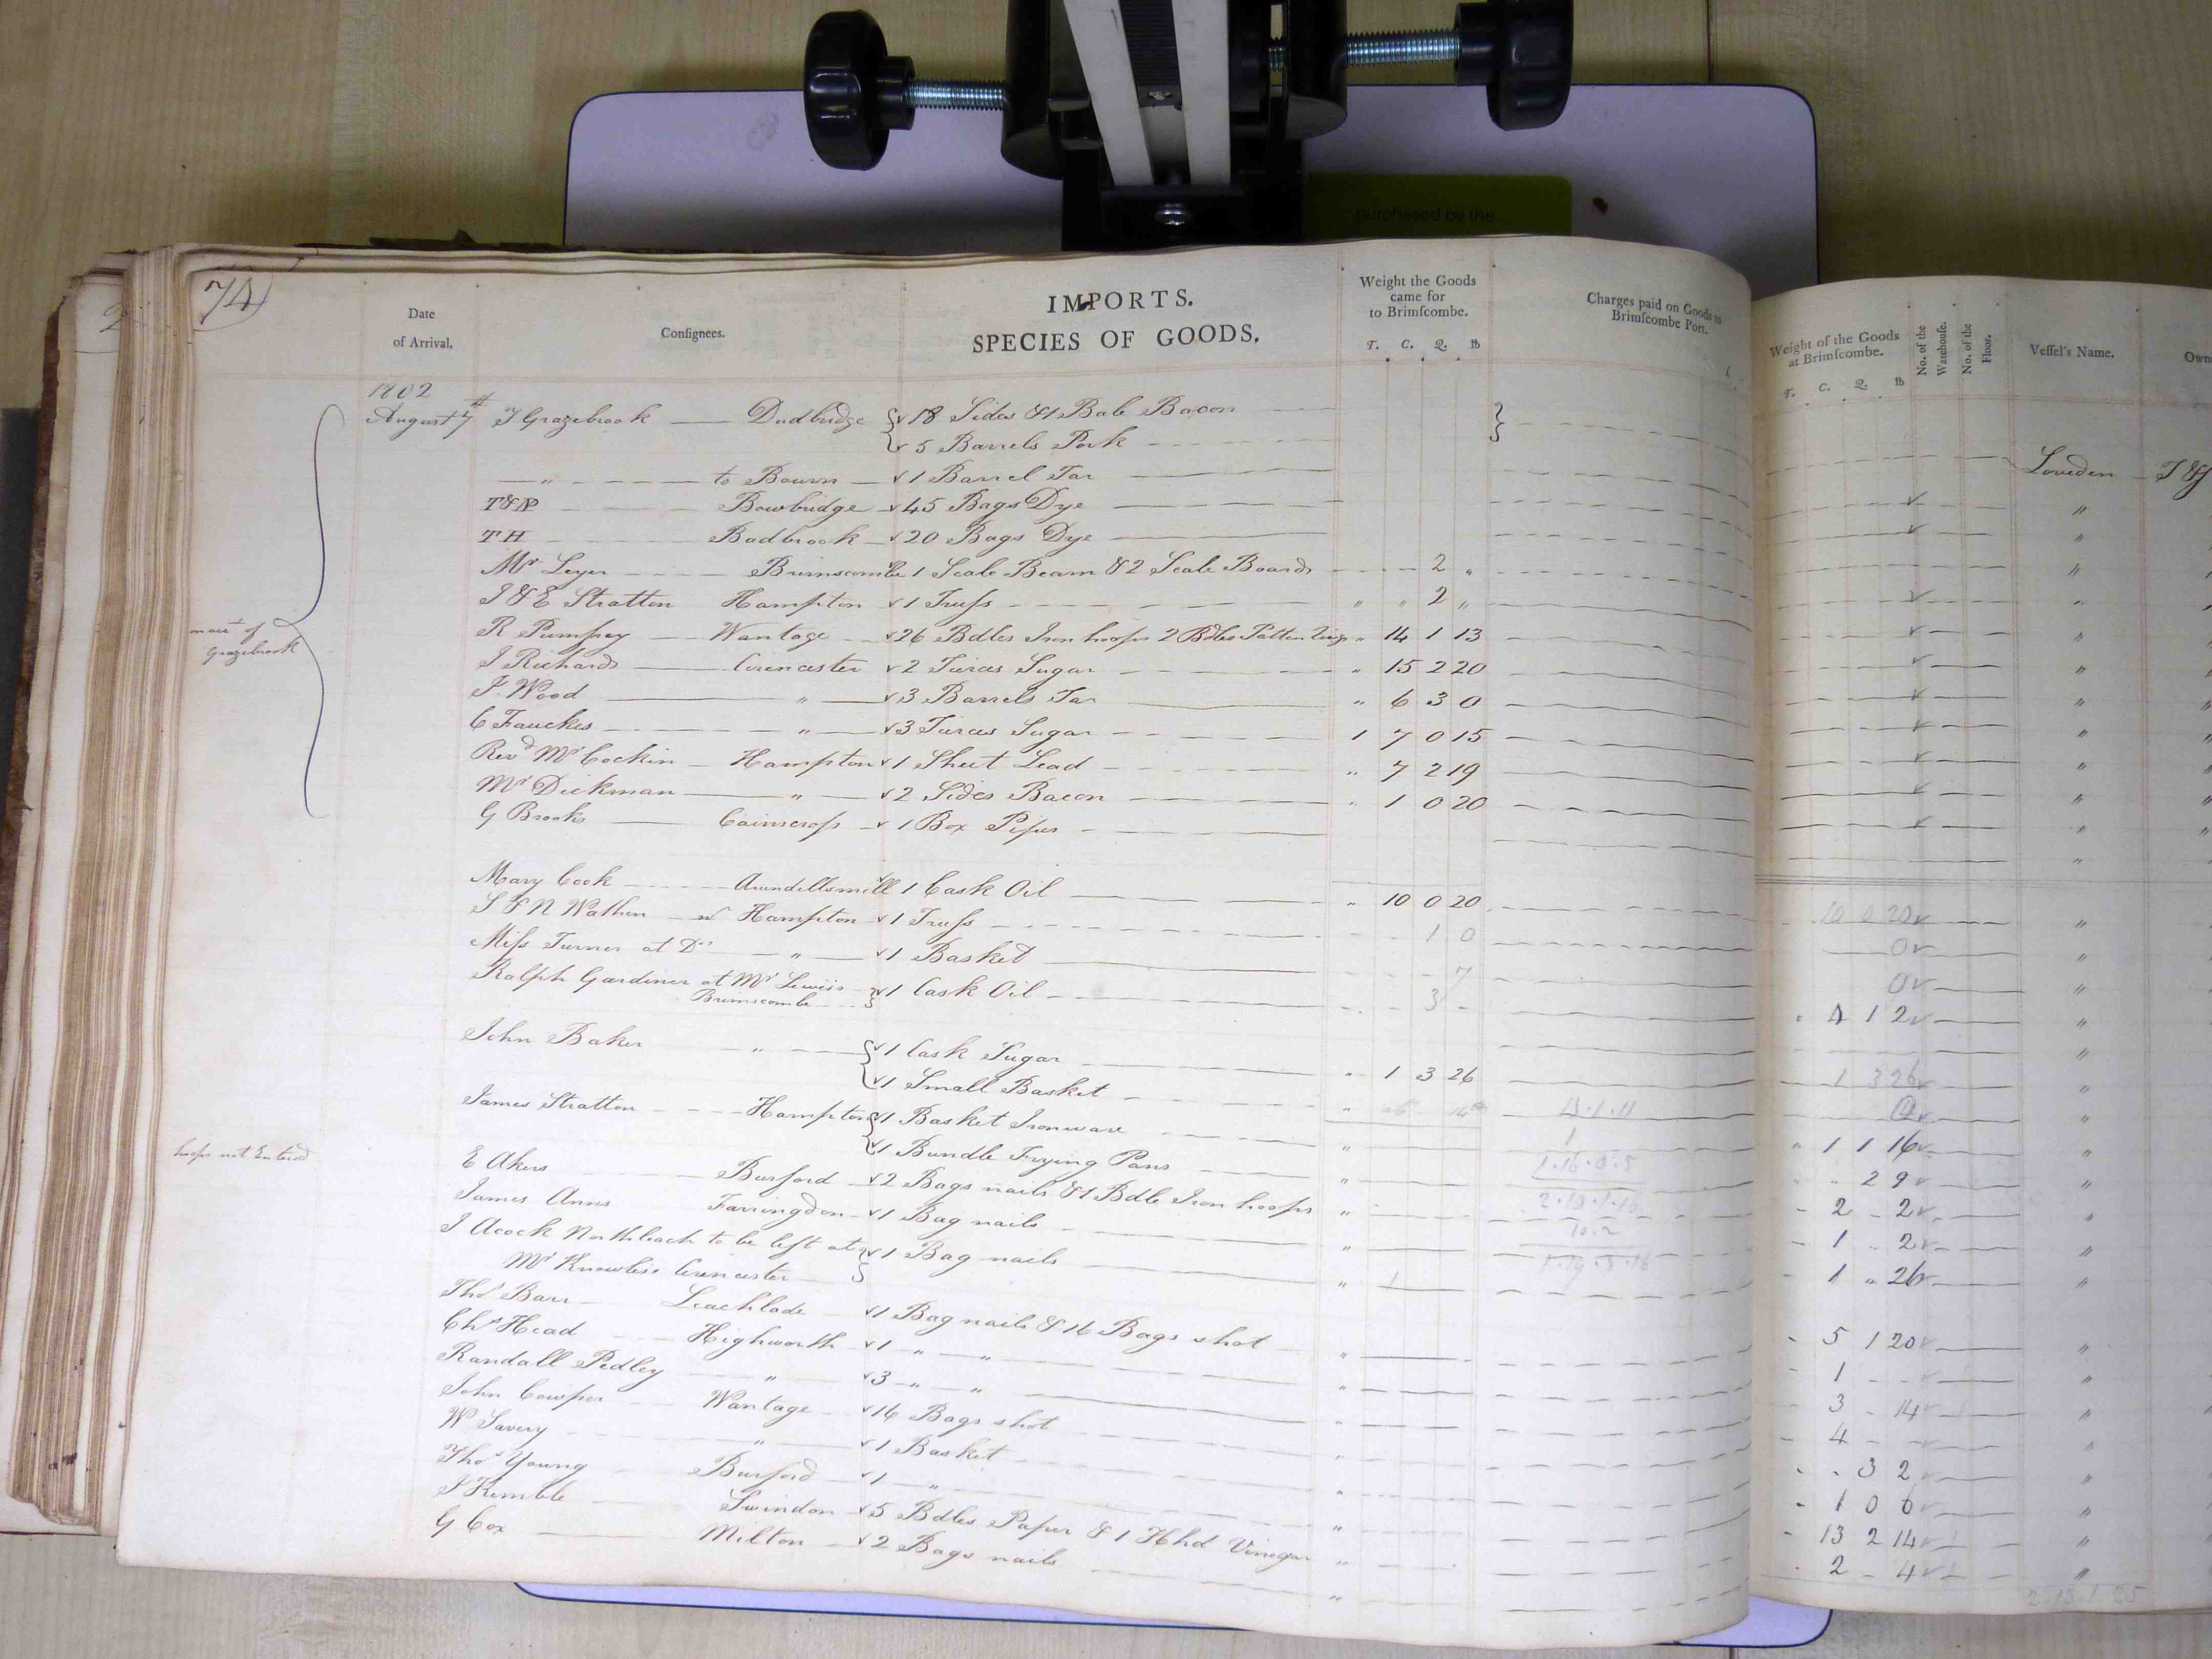 purchased by the
2
74
Date of Arrival.
Consignees.
IMPORTS.
SPECIES OF GOODS.
Weight the Goods came for to Brimscombe.
T. C. Q. lb
Charges paid on Goods to Brimscombe Port.
Weight of the Goods at Brimscombe.
T. C. Q. lb
No. of the Warehouse.
No. of the Floor.
Vessel's Name.
Own
1802
August 7th J Grazebrook Dudbridge 18 Sides & 1 Bale Bacon
5 Barrels Pork
Loveden J &
" to Bourn 1 Barrel Tar "
T&P Bowbridge 45 Bags Dye "
TH Badbrook 20 Bags Dye "
Mr Leyer Brimscombe 1 Scale Beam & 2 Scale Boards 2 " "
J & E Stratton Hampton 1 Truss " " 2 " "
R Pumfrey Wantage 26 Bdles Iron hoops 2 Bdles Patten Rings " 14 1 13 "
J Richards Cirencester 2 Tierces Sugar " 15 2 20 "
J. Wood " 3 Barrels Tar " 6 3 0 "
C Fauckes " 3 Tierces Sugar 1 7 0 15 "
Revd Mr Cockin Hampton 1 Sheet Lead " 7 2 19 "
Mr Dickman " 2 Sides Bacon " 1 0 20 "
G Brooks Cainscross 1 Box Pipes "
of Grazebrook
Mary Cook Arundellsmill 1 Cask Oil " 10 0 20 10 0 20 "
S & N Wathen Hampton 1 Truss 1 0 0 "
Miss Turner at Do " 1 Basket 7 0 "
Ralph Gardiner at Mr Lewiss
Brimscombe 1 Cask Oil 3 - " 4 1 2 "
John Baker " 1 Cask Sugar "
1 Small Basket " 1 3 26 1 3 26 "
James Stratton Hampton 1 Basket Ironware " "
1 Bundle Frying Pans " " 1 1 16 "
hoops not Entered
E Akers Burford 2 Bags nails & 1 Bdle Iron hoops " " " 2 9 "
James Anns Farringdon 1 Bag nails " - 2 - 2 "
J Acock Northleach to be left at 1 Bag nails " - 1 " 2 "
Mr Knowles's Cirencester " - 1 " 26 "
Thos Barr Leachlade 1 Bag nails & 16 Bags shot " - 5 1 20 "
Chs Head Highworth 1 " " " - 1 - - "
Randall Pedley " 3 " " " 3 - 14 "
John Cowper Wantage 16 Bags shot " 4 - - "
W Savery " 1 Basket " - - 3 2 "
Thos Young Burford 1 " " - 1 0 6 "
J Kemble Swindon 5 Bdles Paper & 1 Hhd Vinegar " - 13 2 14 "
G Cox Milton 2 Bags nails " 2 - 4 "
2 13 1 25